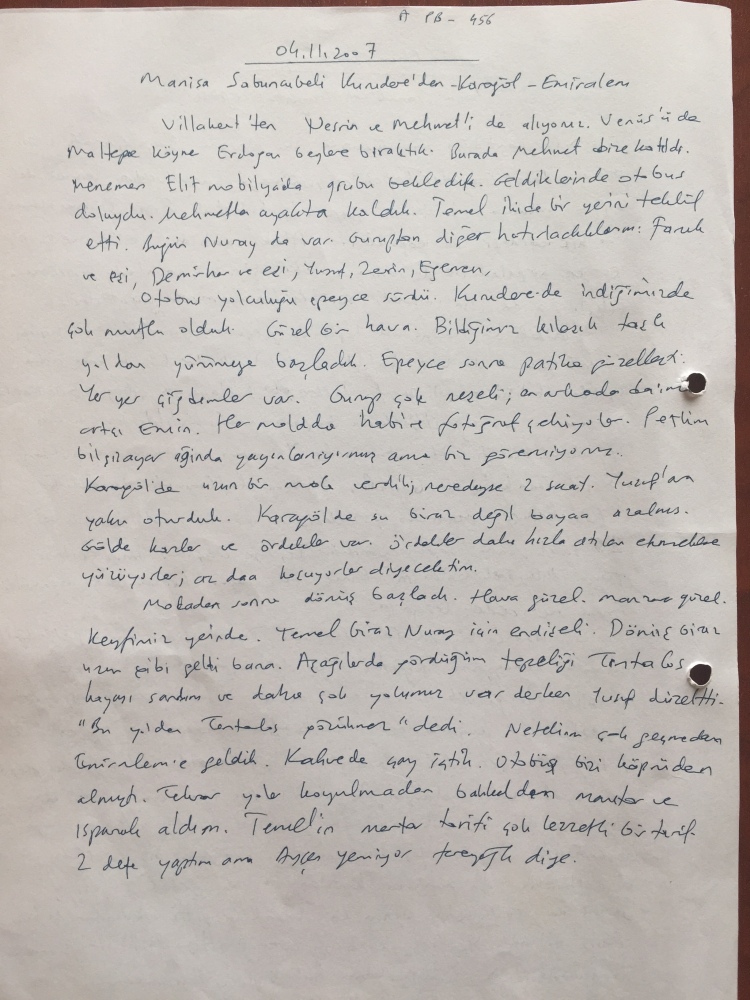 A PB - 456
04.11.2007
Manisa Sabuncubeli Kurudere'den - Karagöl - Emiralem
Villakent'ten Nesrin ve Mehmet'i de alıyoruz. Venüs'ü de
Maltepe köyne Erdoğan beylere bıraktık. Burada Mehmet bize katıldı.
Menemen Elit mobilyada grubu bekledik. Geldiklerinde otobüs
doluydu. Mehmetle ayakta kaldık. Temel ikide bir yerini teklif
etti. Bugün Nuray da var. Guruptan diğer hatırladıklarım: Faruk
ve eşi, Demirhan ve eşi, Yusuf, Zerin, Egeren,
Otobüs yolculuğu epeyce sürdü. Kurudere'de indiğimizde
çok mutlu olduk. Güzel bir hava. Bildiğimiz klasik taşlı
yoldan yürümeye başladık. Epeyce sonra patika güzelleşti.
Yer yer çiğdemler var. Gurup çok neşeli; en arkada daima
artçı Emin. Her molada habire fotoğraf çekiyorlar. Petkim
bilgisayar ağında yayınlanıyormuş ama biz göremiyoruz.
Karagöl'de uzun bir mola verdik; neredeyse 2 saat. Yusuf'lara
yakın oturduk. Karagölde su biraz değil bayaa azalmış.
Gölde kazlar ve ördekler var. Ördekler daha hızla atılan ekmeklere
yüzüyorlar; az daa koşuyorlar diyecektim.
Moladan sonra dönüş başladı. Hava güzel. manzara güzel.
Keyfimiz yerinde. Temel biraz Nuray için endişeli. Dönüş biraz
uzun gibi geldi bana. Aşağılarda gördüğüm tepeliği Tantalos
kayası sandım ve daha çok yolumuz var derken Yusuf düzeltti.
"Bu yoldan Tantalos gözükmez" dedi. Netekim çok geçmeden
Emiraleme geldik. Kahvede çay içtik. Otobüs bizi köprüden
almıştı. Tekrar yola koyulmadan bakkaldan mantar ve
ıspanak aldım. Temel'in mantar tarifi çok lezzetli bir tarif.
2 defa yaptım ama Ayşen yemiyor tereyağlı diye.